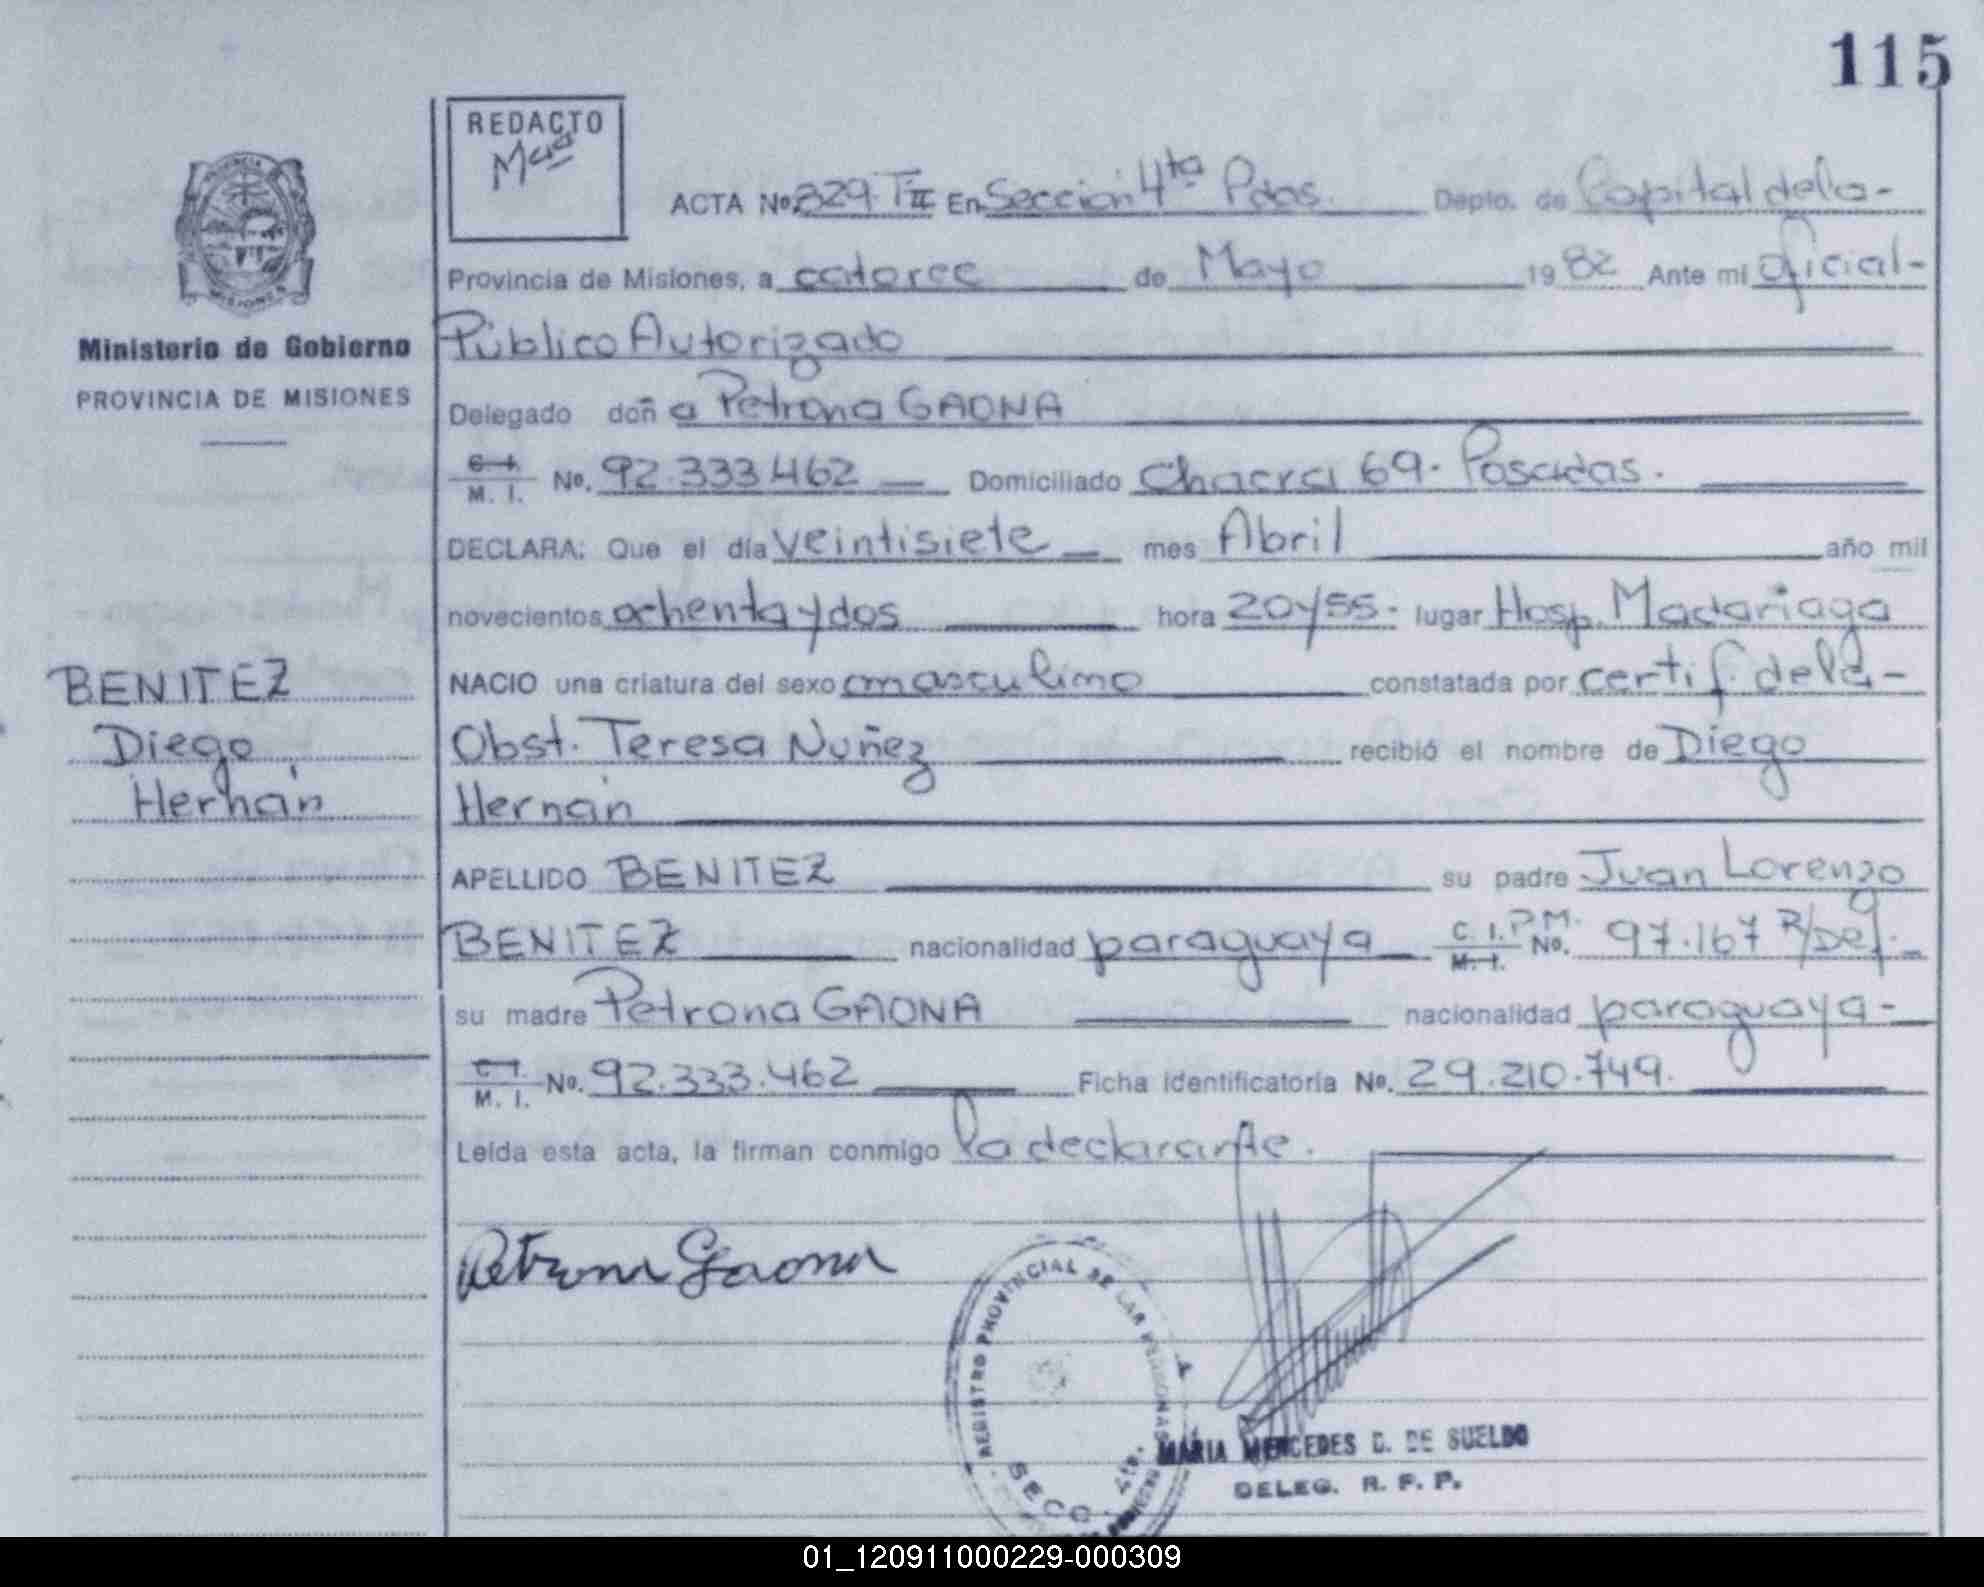 115
REDACTO
PROVINCIA
MISIONES
ACTA No 329. TII En Sección 4ta Pdas. Depto. de Capital de la-
Provincia de Misiones, a catorce de Mayo 1982 Ante mi oficial-
Ministerio de Gobierno
Público Autorizado
PROVINCIA DE MISIONES
Delegado doña Petrona GAONA
C. I.
M. I. No. 92.333.462 Domiciliado Chacra 69. Posadas.
DECLARA: Que el día veintisiete mes Abril año mil
novecientos ochenta y dos hora 20 y 55. lugar Hosp. Madariaga
BENITEZ
Diego
Hernán
NACIO una criatura del sexo masculino constatada por certif. de la-
Obst. Teresa Nuñez recibió el nombre de Diego
Hernán
APELLIDO BENITEZ su padre Juan Lorenzo
BENITEZ nacionalidad paraguaya C. I. P.M.
M. I. No. 97.167 R/Def.
su madre Petrona GAONA nacionalidad paraguaya-
C. I.
M. I. No. 92.333.462 Ficha identificatoria No. 29.210.749.
Leída esta acta, la firman conmigo la declarante.
Petrona Gaona
REGISTRO PROVINCIAL DE LAS PERSONAS
SECC. 4ta.
MARIA MERCEDES D. DE SUELDO
DELEG. R. P. P.
01_120911000229-000309